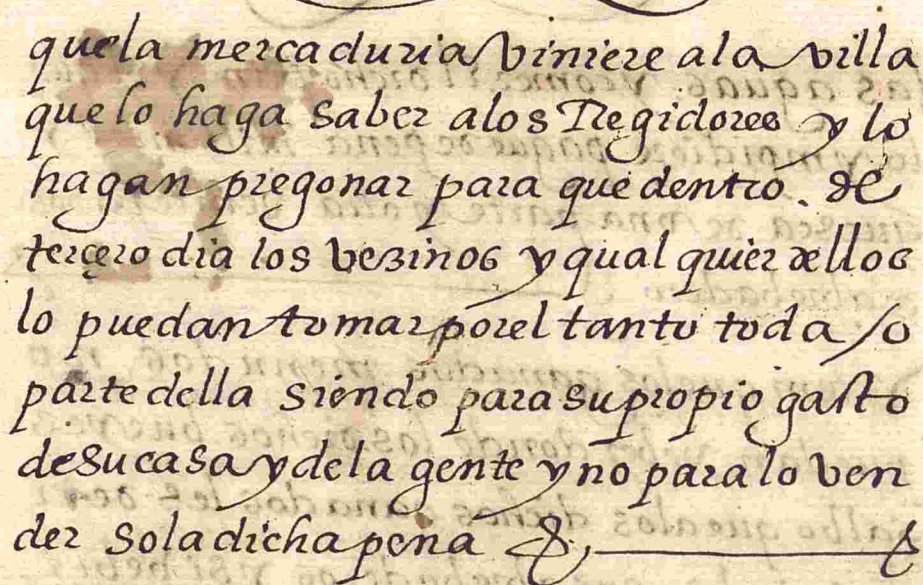 que la mercaduria viniere a la villa
que lo haga saber a los Regidores y lo
hagan pregonar para que dentro. de
terçero dia los vezinos y qual quier dellos
lo puedan tomar por el tanto toda /o
parte della siendo para su propio gasto
de su casa y de la gente y no para lo ven
der so la dicha pena